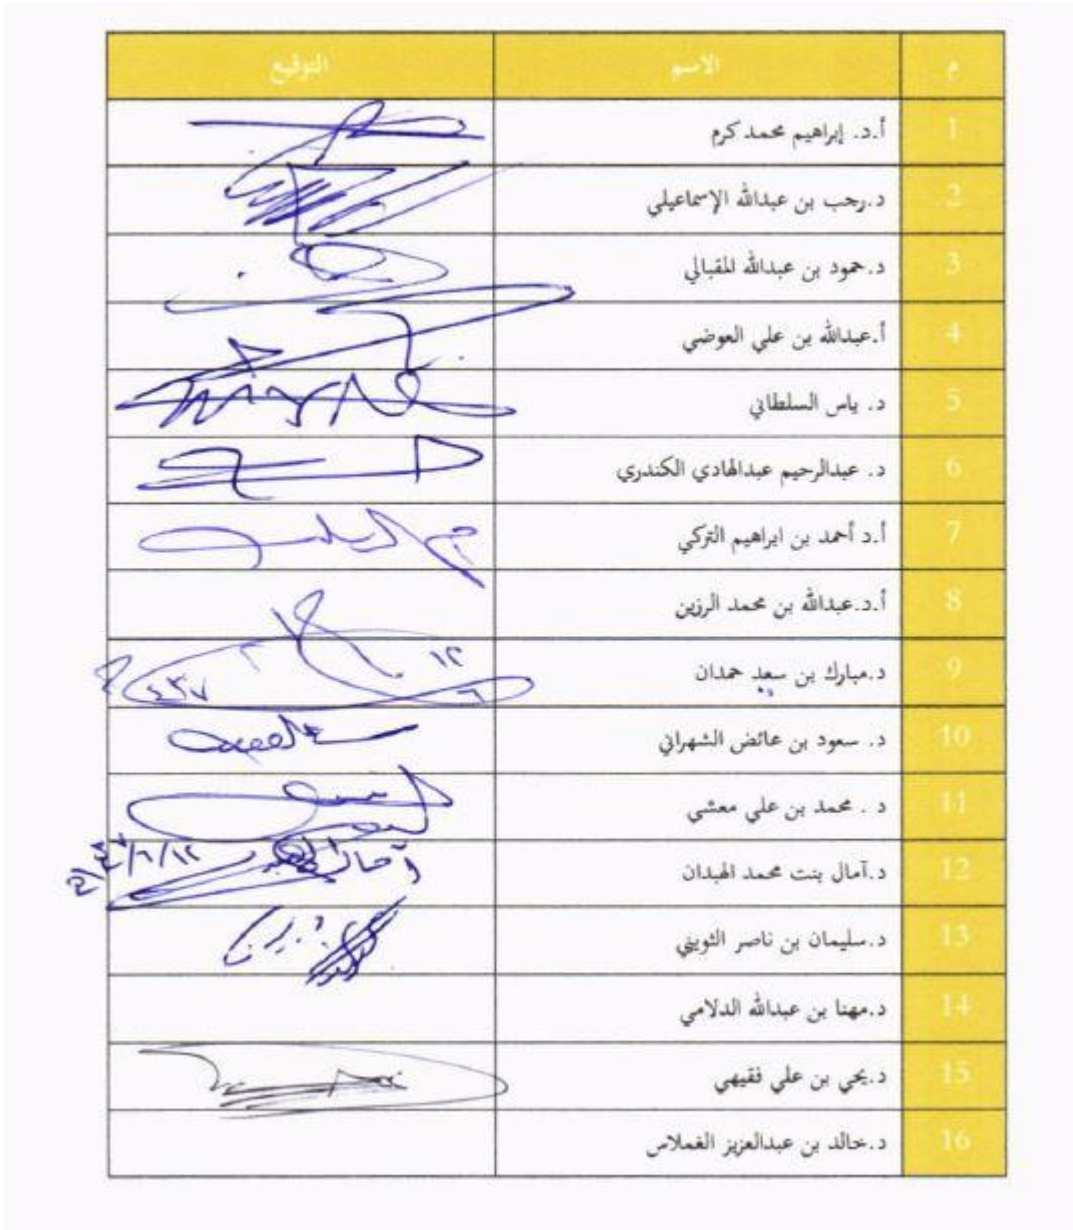 م الاسم التوقيع
1 أ.د. إبراهيم محمد كرم
2 د.رجب بن عبدالله الإسماعيلي
3 د.حمود بن عبدالله المقبالي
4 أ.عبدالله بن علي العوضي
5 د. ياس السلطاني
6 د. عبدالرحيم عبدالهادي الكندري
7 أ.د أحمد بن ابراهيم التركي
8 أ.د.عبدالله بن محمد الرزين
9 د.مبارك بن سعيد حمدان
10 د. سعود بن عائض الشهراني
11 د . محمد بن علي معشي
12 د.آمال بنت محمد الهبدان
13 د.سليمان بن ناصر الثويني
14 د.مهنا بن عبدالله الدلامي
15 د.يحي بن علي فقيهي
16 د.خالد بن عبدالعزيز الغملاس